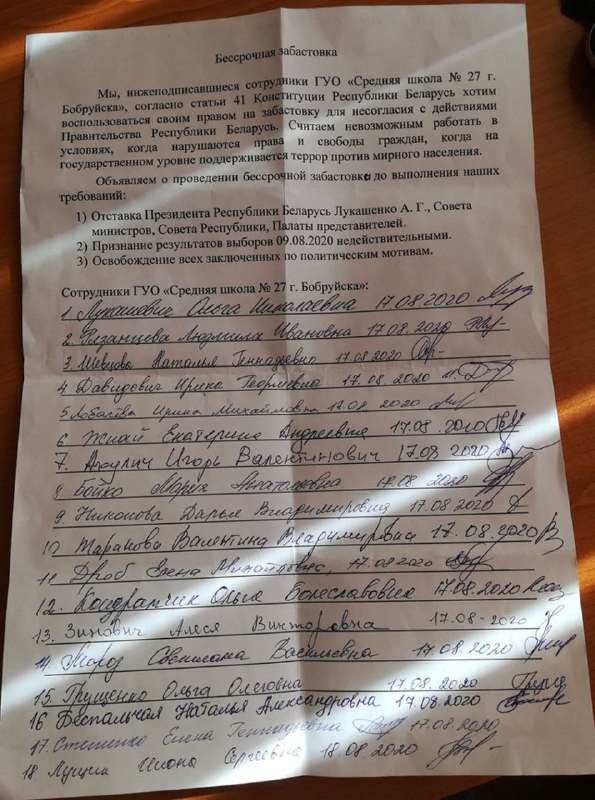 Бессрочная забастовка
Мы, нижеподписавшиеся сотрудники ГУО «Средняя школа № 27 г.
Бобруйска», согласно статьи 41 Конституции Республики Беларусь хотим
воспользоваться своим правом на забастовку для несогласия с действиями
Правительства Республики Беларусь. Считаем невозможным работать в
условиях, когда нарушаются права и свободы граждан, когда на
государственном уровне поддерживается террор против мирного населения.
Объявляем о проведении бессрочной забастовке до выполнения наших
требований:
1) Отставка Президента Республики Беларусь Лукашенко А. Г., Совета
министров, Совета Республики, Палаты представителей.
2) Признание результатов выборов 09.08.2020 недействительными.
3) Освобождение всех заключенных по политическим мотивам.
Сотрудники ГУО «Средняя школа № 27 г. Бобруйска»:
1. Лукашевич Ольга Николаевна 17.08.2020
2. Рязанцева Людмила Ивановна 17.08.2020
3. Шевцова Наталья Геннадьевна 17.08.2020
4. Давидович Ирина Георгиевна 17.08.2020
5. Ирина Михайловна 17.08.2020
6. Екатерина Андреевна 17.08.2020
7. Игорь Валентинович 17.08.2020
8. Бойко Мария Анатольевна 17.08.2020
9. Никонова Дарья Владимировна 17.08.2020
10. Таранова Валентина Владимировна 17.08.2020
11. Дроб Елена Михайловна, 17.08.2020
12. Кондратчик Ольга Болеславовна 17.08.2020
13. Зинович Алеся Викторовна 17.08-2020
14. Мороз Светлана Васильевна 17.08.2020
15. Грищенко Ольга Олеговна 17.08.2020
16 Беспальчая Наталья Александровна 17.08.2020
17. Елена Геннадьевна 17.08.2020
18 Сергеевна 18.08.2020